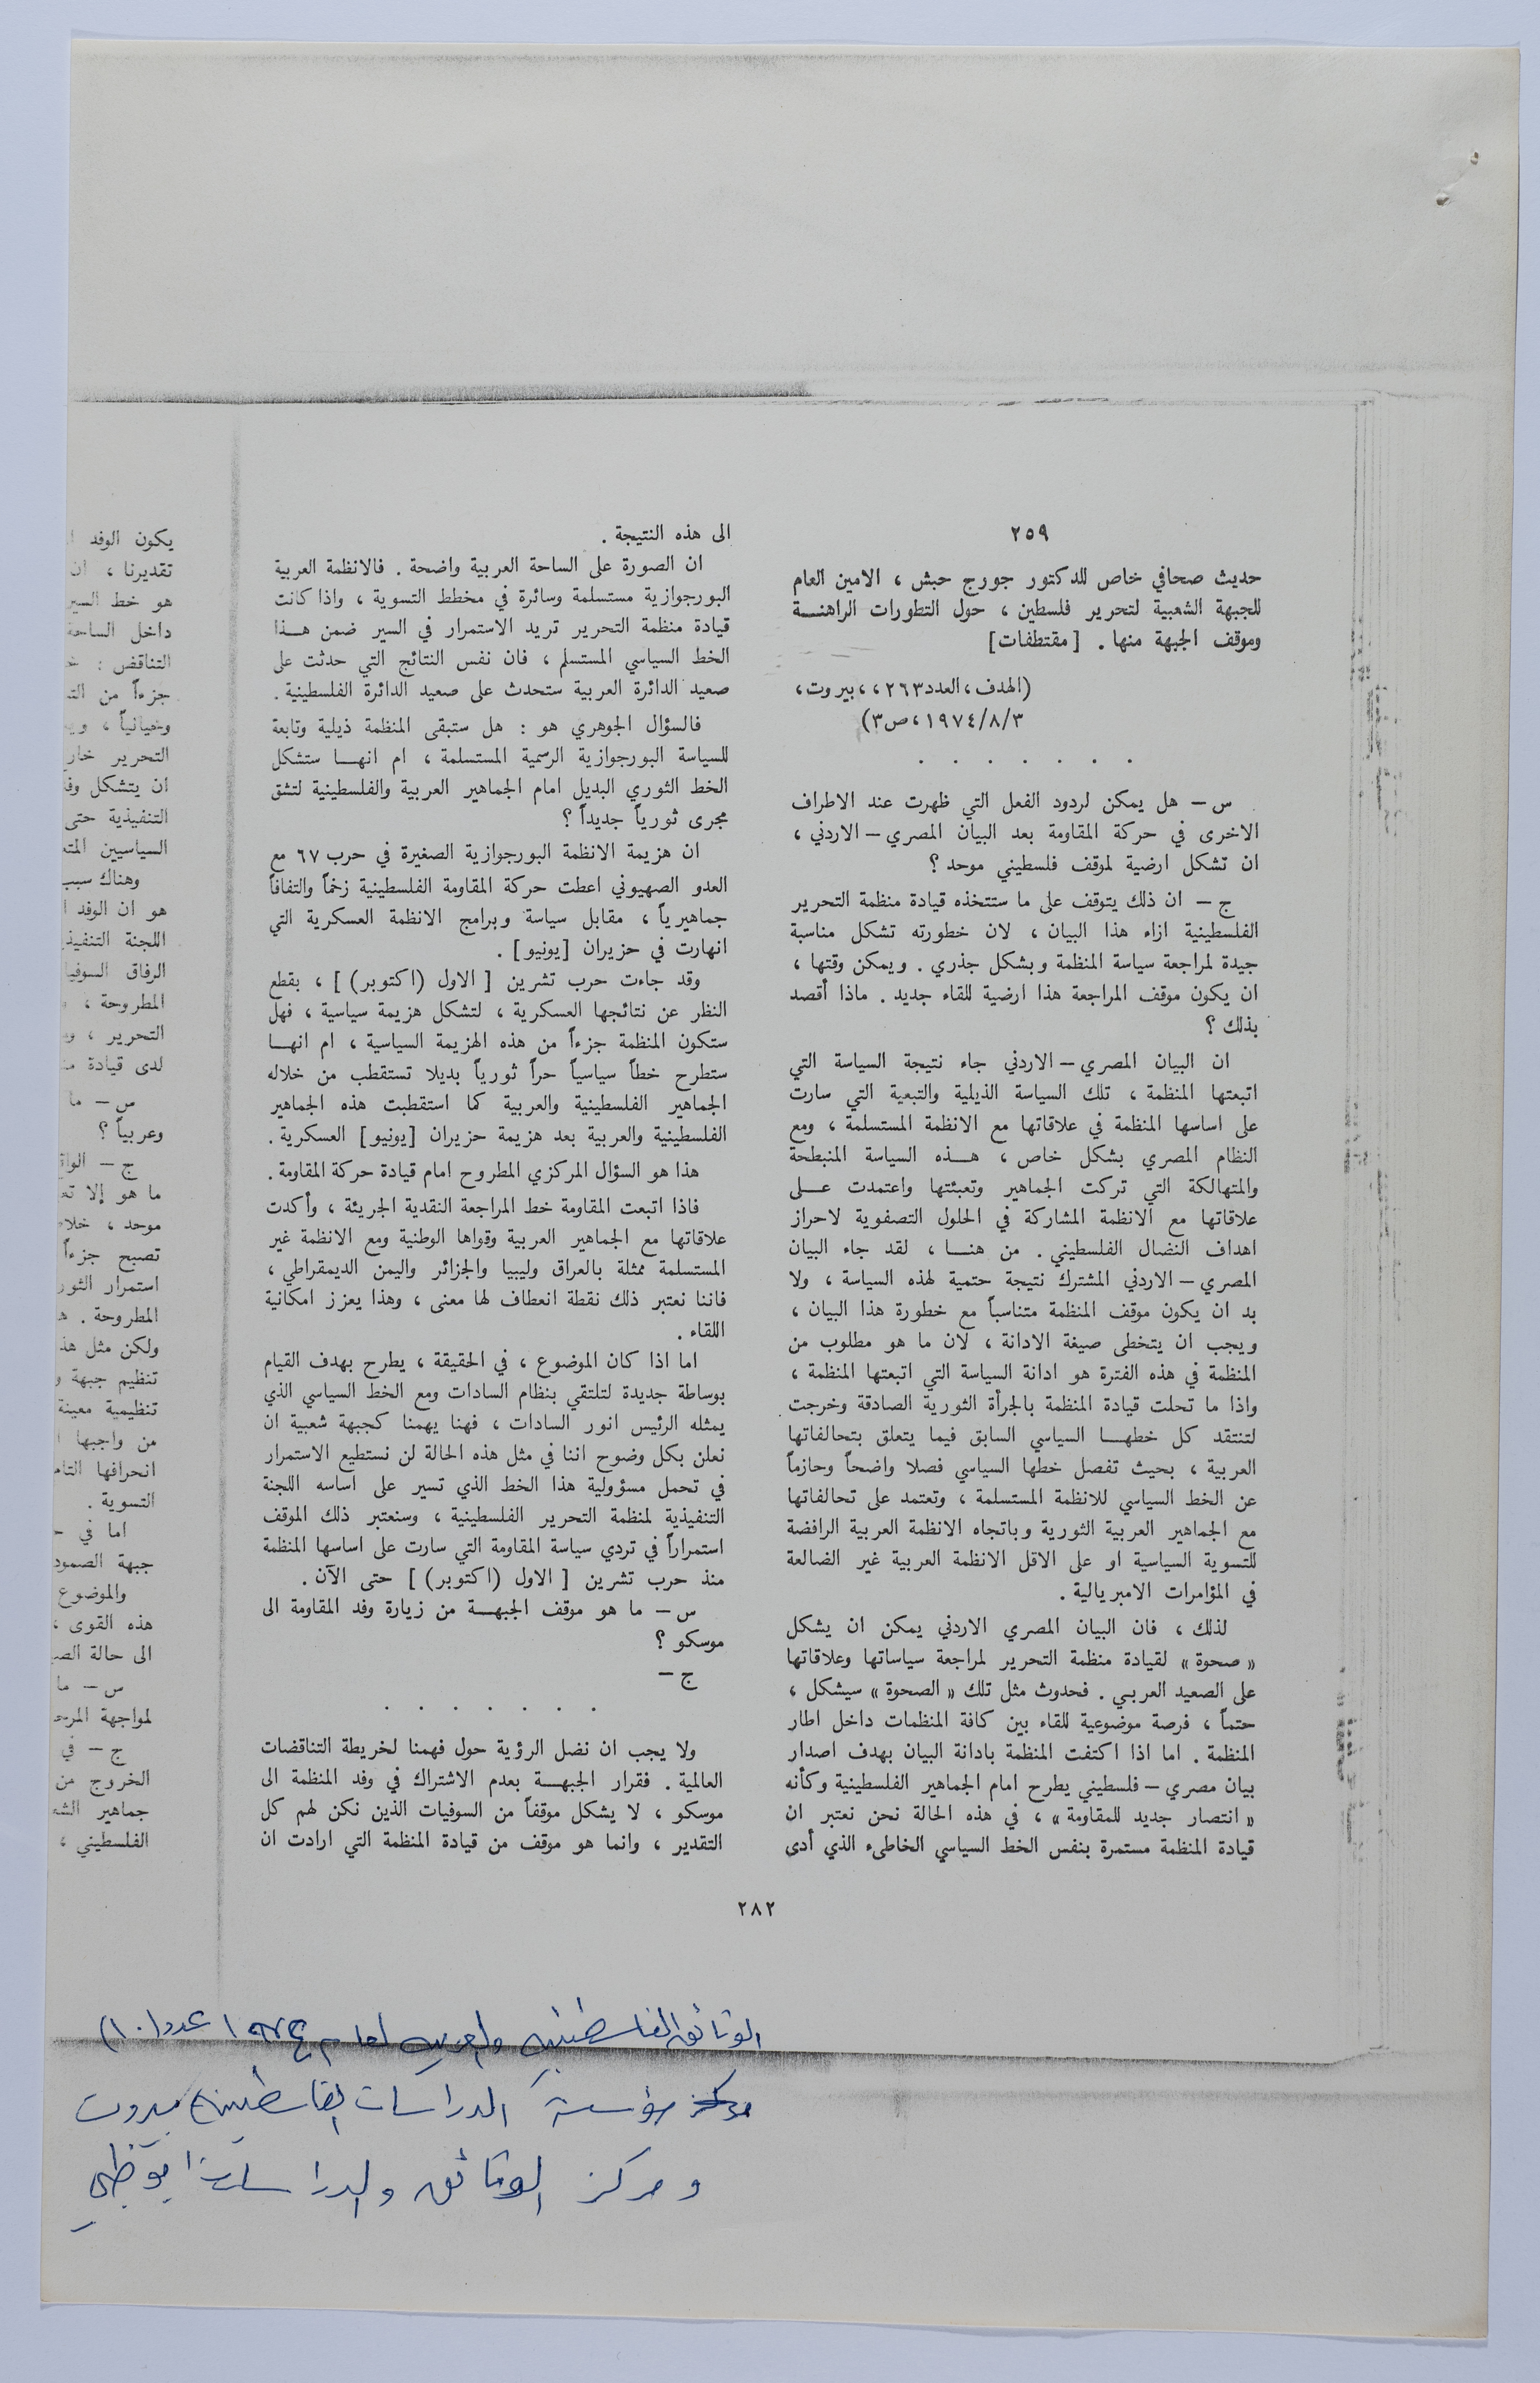 ٢٥٩
حديث صحافي خاص للدكتور جورج حبش ، الامين العام
للجبهة الشعبية لتحرير فلسطين ، حول التطورات الراهنـــة
وموقف الجبهة منها . [مقتطفات]
(الهدف ، العدد ٢٦٣ ، ، بيروت ،
١٩٧٤/٨/٣ ، ص ٣)
. . . . . . .
س – هل يمكن لردود الفعل التي ظهرت عند الاطراف
الاخرى في حركة المقاومة بعد البيان المصري – الاردني ،
ان تشكل ارضية لموقف فلسطيني موحد ؟
ج – ان ذلك يتوقف على ما ستتخذه قيادة منظمة التحرير
الفلسطينية ازاء هذا البيان ، لان خطورته تشكل مناسبة
جيدة لمراجعة سياسة المنظمة وبشكل جذري . ويمكن وقتها ،
ان يكون موقف المراجعة هذا ارضية للقاء جديد . ماذا أقصد
بذلك ؟
ان البيان المصري – الاردني جاء نتيجة السياسة التي
اتبعتها المنظمة ، تلك السياسة الذيلية والتبعية التي سارت
على اساسها المنظمة في علاقاتها مع الانظمة المستسلمة ، ومع
النظام المصري بشكل خاص ، هـــذه السياسة المنبطحة
والمتهالكة التي تركت الجماهير وتعبئتها واعتمدت عـــلى
علاقاتها مع الانظمة المشاركة في الحلول التصفوية لاحراز
اهداف النضال الفلسطيني . من هنـــا ، لقد جاء البيان
المصري – الاردني المشترك نتيجة حتمية لهذه السياسة ، ولا
بد ان يكون موقف المنظمة متناسباً مع خطورة هذا البيان ،
ويجب ان يتخطى صيغة الادانة ، لان ما هو مطلوب من
المنظمة في هذه الفترة هو ادانة السياسة التي اتبعتها المنظمة ،
واذا ما تحلت قيادة المنظمة بالجرأة الثورية الصادقة وخرجت
لتنتقد كل خطهـــا السياسي السابق فيما يتعلق بتحالفاتها
العربية ، بحيث تفصل خطها السياسي فصلا واضحاً وحازماً
عن الخط السياسي للانظمة المستسلمة ، وتعتمد على تحالفاتها
مع الجماهير العربية الثورية وباتجاه الانظمة العربية الرافضة
للتسوية السياسية او على الاقل الانظمة العربية غير الضالعة
في المؤامرات الامبريالية .
لذلك ، فان البيان المصري الاردني يمكن ان يشكل
« صحوة » لقيادة منظمة التحرير لمراجعة سياساتها وعلاقاتها
على الصعيد العربي . فحدوث مثل تلك « الصحوة » سيشكل ،
حتماً ، فرصة موضوعية للقاء بين كافة المنظمات داخل اطار
المنظمة . اما اذا اكتفت المنظمة بادانة البيان بهدف اصدار
بيان مصري – فلسطيني يطرح امام الجماهير الفلسطينية وكأنه
« انتصار جديد للمقاومة » ، في هذه الحالة نحن نعتبر ان
قيادة المنظمة مستمرة بنفس الخط السياسي الخاطىء الذي أدى
الى هذه النتيجة .
ان الصورة على الساحة العربية واضحة . فالانظمة العربية
البورجوازية مستسلمة وسائرة في مخطط التسوية ، واذا كانت
قيادة منظمة التحرير تريد الاستمرار في السير ضمن هـــذا
الخط السياسي المستسلم ، فان نفس النتائج التي حدثت على
صعيد الدائرة العربية ستحدث على صعيد الدائرة الفلسطينية .
فالسؤال الجوهري هو : هل ستبقى المنظمة ذيلية وتابعة
للسياسة البورجوازية الرسمية المستسلمة ، ام انهـــا ستشكل
الخط الثوري البديل امام الجماهير العربية والفلسطينية لتشق
مجرى ثورياً جديداً ؟
ان هزيمة الانظمة البورجوازية الصغيرة في حرب ٦٧ مع
العدو الصهيوني اعطت حركة المقاومة الفلسطينية زخماً والتفافاً
جماهيرياً ، مقابل سياسة وبرامج الانظمة العسكرية التي
انهارت في حزيران [يونيو] .
وقد جاءت حرب تشرين [ الاول (اكتوبر) ] ، بقطع
النظر عن نتائجها العسكرية ، لتشكل هزيمة سياسية ، فهل
ستكون المنظمة جزءاً من هذه الهزيمة السياسية ، ام انهـــا
ستطرح خطاً سياسياً حراً ثورياً بديلا تستقطب من خلاله
الجماهير الفلسطينية والعربية كما استقطبت هذه الجماهير
الفلسطينية والعربية بعد هزيمة حزيران [يونيو] العسكرية .
هذا هو السؤال المركزي المطروح امام قيادة حركة المقاومة .
فاذا اتبعت المقاومة خط المراجعة النقدية الجريئة ، وأكدت
علاقاتها مع الجماهير العربية وقواها الوطنية ومع الانظمة غير
المستسلمة ممثلة بالعراق وليبيا والجزائر واليمن الديمقراطي ،
فاننا نعتبر ذلك نقطة انعطاف لها معنى ، وهذا يعزز امكانية
اللقاء .
اما اذا كان الموضوع ، في الحقيقة ، يطرح بهدف القيام
بوساطة جديدة لتلتقي بنظام السادات ومع الخط السياسي الذي
يمثله الرئيس انور السادات ، فهنا يهمنا كجبهة شعبية ان
نعلن بكل وضوح اننا في مثل هذه الحالة لن نستطيع الاستمرار
في تحمل مسؤولية هذا الخط الذي تسير على اساسه اللجنة
التنفيذية لمنظمة التحرير الفلسطينية ، وسنعتبر ذلك الموقف
استمراراً في تردي سياسة المقاومة التي سارت على اساسها المنظمة
منذ حرب تشرين [ الاول (اكتوبر) ] حتى الآن .
س – ما هو موقف الجبهـــة من زيارة وفد المقاومة الى
موسكو ؟
ج –
. . . . . . .
ولا يجب ان نضل الرؤية حول فهمنا لخريطة التناقضات
العالمية . فقرار الجبهـــة بعدم الاشتراك في وفد المنظمة الى
موسكو ، لا يشكل موقفاً من السوفيات الذين نكن لهم كل
التقدير ، وانما هو موقف من قيادة المنظمة التي ارادت ان
يكون الوفد
تقديرنا ، ان
هو خط السير
داخل الساحة
التناقض :
جزءاً من
وحيانياً ،
التحرير
ان يتشكل
التنفيذية حتى
السياسيين
وهناك سبب
هو ان الوفد
اللجنة
الرفاق
المطروحة ،
التحرير ،
لدى قيادة
س – ما
وعربياً ؟
ج –
ما هو إلا
موحد ،
تصبح جزءاً
استمرار
المطروحة .
ولكن مثل
تنظيم جبهة
تنظيمية معينة
من واجبها
انحرافها
التسوية .
اما في
جبهة الصمود
والموضوع
هذه القوى ،
الى حالة
س – ما
لمواجهة
ج – في
الخروج من
جماهير
الفلسطيني ،
٢٨٢
الوثائق الفلسطينية والعربية لعام ١٩٧٤ عدد (١٠)
مؤسسة الدراسات الفلسطينية بيروت
ومركز الوثائق والدراسات ابوظبي